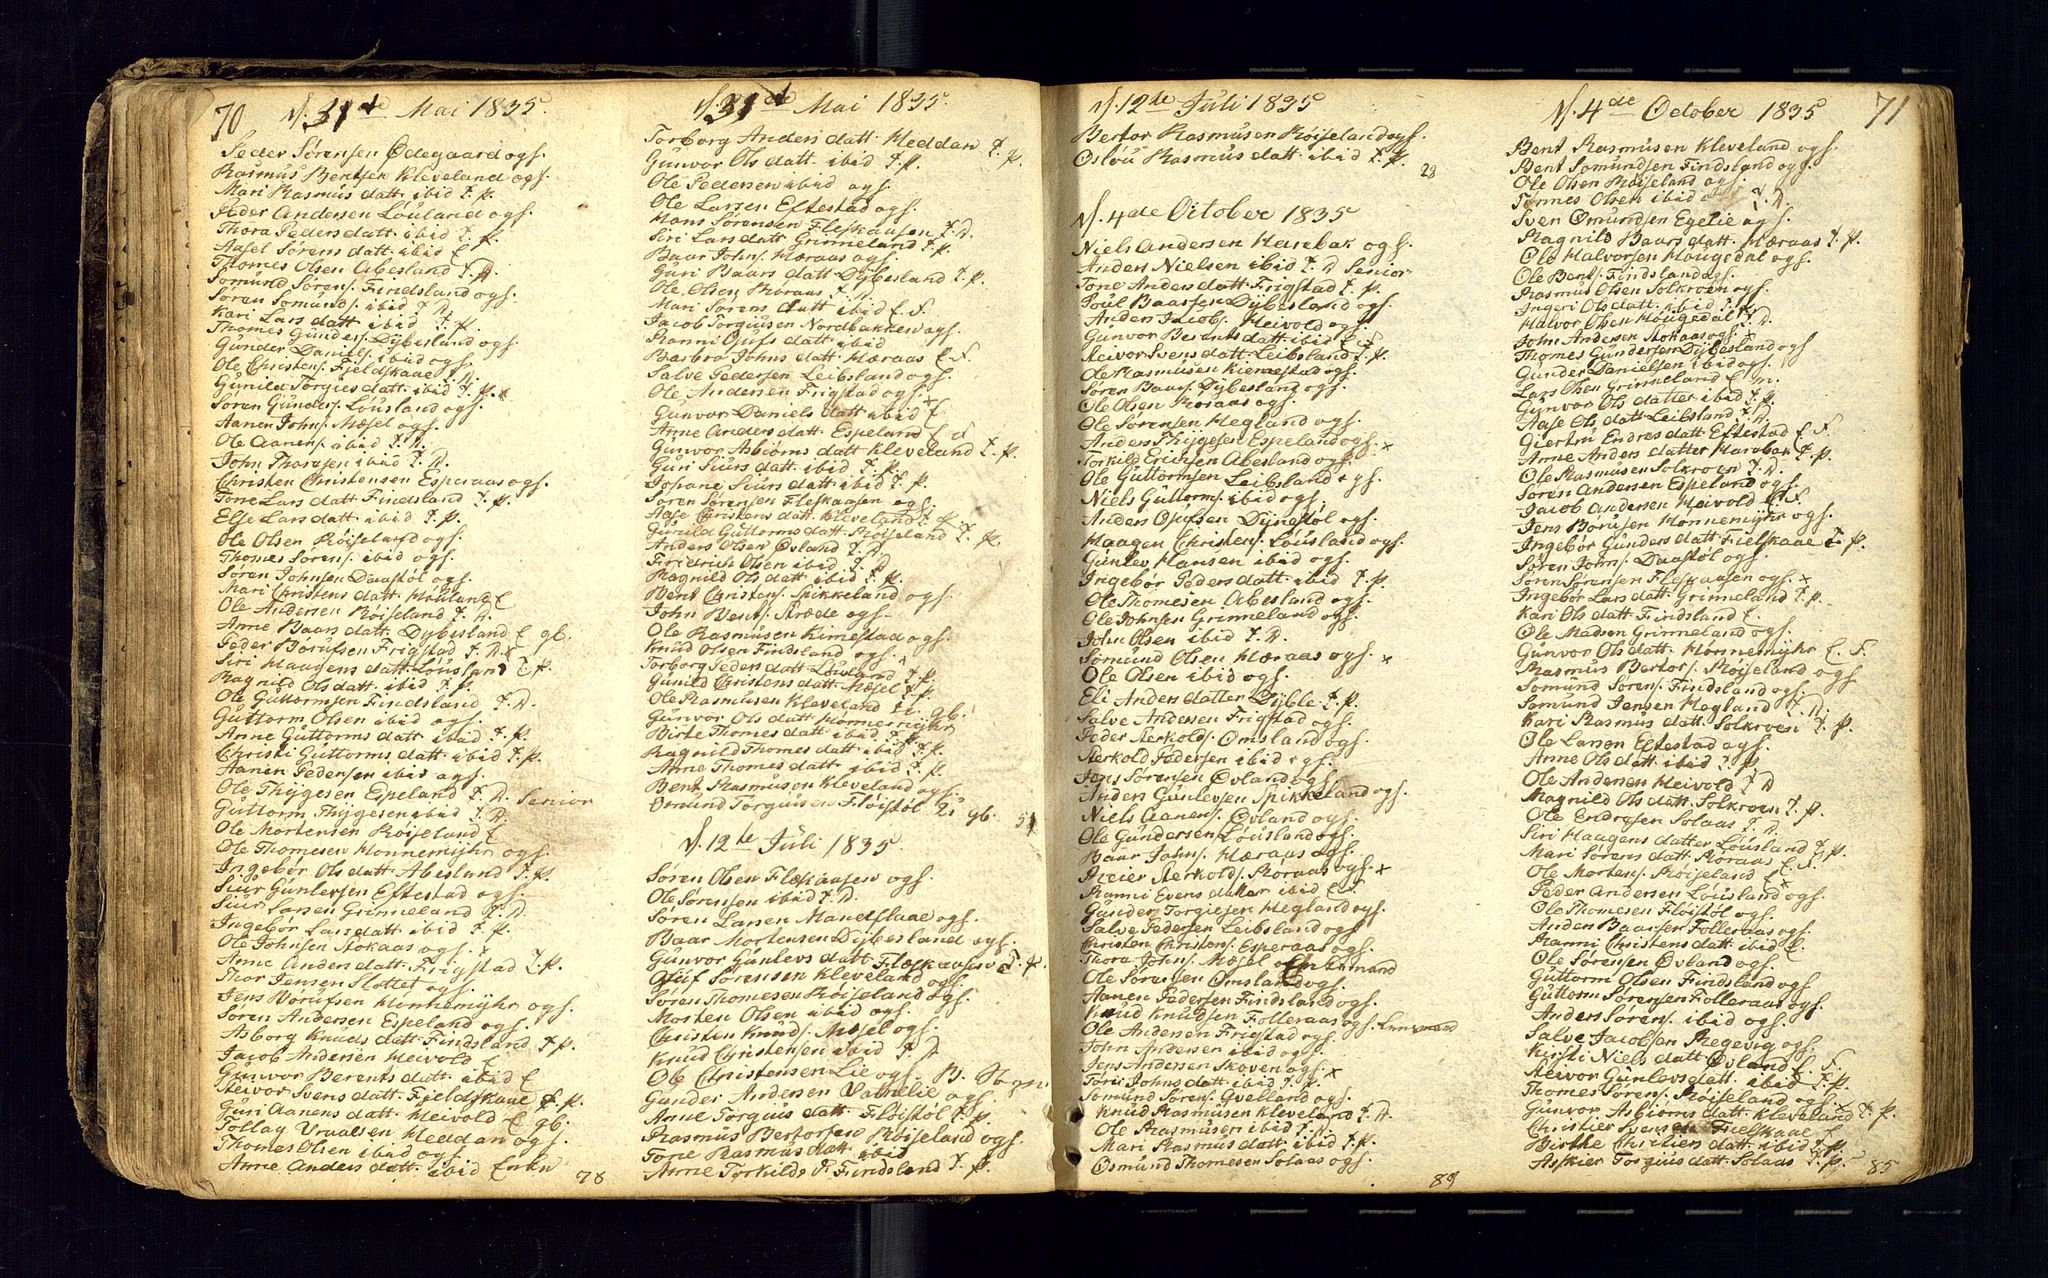 70
31te Mai 1835
Peder Sørensen Ødegaard ogs.
Rasmus Bentsen Kleveland ogs.
Mari Rasmus datt ibid T. P.
Peder Andersen Louland ogs.
Thora Peders datt ibid T. P.
Aasel Sørens datt ibid E
Thomes Olsen Abesland T. D.
Somund Sørens. Findsland ogs.
Søren Somunds. ibid T. D.
Kari Lars datt ibid T. P.
Thomes Gunders. Dybesland ogs
Gunder Daniels. ibid ogs.
Ole Christens. Fieldskaae T. D.
Gunild Torgies datt ibid T. P. x
Søren Gunders. Lousland ogs.
Aanen Johns. Mæsel ogs.
Ole Aanens. ibid T. D.
John Thoresen ibid T. D.
Christen Christensen Esperaas ogs.
Tone Lars datt Findsland T. P.
Else Lars datt ibid T. P.
Ole Olsen Røiseland ogs.
Thomes Sørens. ibid ogs.
Søren Johnsen Daastøl ogs.
Mari Christens datt Houland E
Ole Andersen Røiseland T. D.
Anne Baars datt. Dybesland E gb.
Peder Børufsen Frigstad T. D. x
Siri Haagens datt. Lousland T. P.
Ragnild Ols datt. ibid T. P.
Ole Guttormsen Findsland T. D.
Guttorm Olsen ibid ogs.
Anne Guttorms datt ibid T. P.
Christi Guttorms datt ibid T. P.
Aanen Pedersen ibid ogs.
Ole Thygesen Espeland T. D. Senior
Guttorm Thygesen ibid T. D.
Ole Mortensen Røiseland E
Ole Thomesen Honnemyhr ogs.
Ingebør Ols datt Abesland T. P.
Siur Gunlevsen Eftestad ogs.
Siur Larsen Grimeland T. D.
Ingebør Lars datt. ibid T. P.
Ole Johnsen Stokaas ogs.
Anne Anders datt. Frigstad T. P.
Thor Jensen Slottet ogs.
Jens Børufsen Honnemyhr ogs.
Søren Andersen Espeland ogs.
Asborg Knuds datt Findsland T. P.
Jacob Andersen Heivold E
Gunvor Berents datt. ibid E
Steivor Svens datt. Fieldskaae T. P.
Guri Aanens datt. Heivold E gb.
Tollag Heddan ogs.
Thomas Olsen ibid ogs.
Anne Anders datt. ibid Enke
78
31te Mai 1835.
Torborg Anders datt. Heddan T. P.
Gunvor Ols datt. ibid T. P.
Ole Pedersen ibid ogs.
Ole Larsen Eftestad ogs.
Hans Sørensen Fleskaasen T. D.
Siri Lars datt Grimeland T. P.
Baar Johns. Hæraas ogs.
Guri Baars datt Dybesland T. P.
Ole Olsen Roraas T. D.
Mari Sørens datt ibid E. F.
Jacob Torgiusen Nordbakken ogs.
Ranni Ojufs datt ibid
Barbro Johns datt Hæraas E. F.
Salve Pedersen Leibsland ogs.
Ole Andersen Frigstad ogs. x
Gunvor Daniels datt ibid E
Anne Anders datt. Espeland E F
Gunvor Asbiørns datt Kleveland T. P.
Guri Siurs datt. ibid T. P.
Johane Siurs datt. ibid T. P.
Søren Sørensen Fleskaasen ogs.
Aase Christens datt. Kleveland T. P.
Gunild Guttorms datt. Røiseland T. P.
Anders Olsen Øvland T. D.
Fridrich Olsen ibid T. D
Ragnild Ols datt. ibid T. P.
Bent Christens. Spikkeland ogs.
John Bents. Stræde ogs.
Ole Rasmusen Kimestad ogs.
Knud Olsen Findsland ogs. x
Torborg Peders datt Louland T. P.
Gunild Christens datt Mæsel T. P.
Ole Rasmusen Kleveland E. gb.
Gunvor Ols datt Honnemyhr
Birte Thomes datt. ibid T. P.
Ragnild Thomes datt. ibid T. P.
Anne Thomes datt. ibid T. P.
Bent Rasmusen Kleveland ogs.
Osmund Torgiusen Fløistøl 2s gb. 51
12te Juli 1835.
Søren Olsen Fleskaasen ogs.
Ole Sørensen ibid T. D.
Søren Larsen Mandflaae ogs.
Baar Mortensen Dybesland ogs.
Gunvor Gunlevs datt Fleskaasen T. P.
Ojuf Sørensen Kleveland ogs.
Søren Thomesen Røiseland ogs.
Morten Olsen ibid ogs.
Christen Knuds. Mæsel ogs.
Knud Christensen ibid T. D
Ole Christensen Lie ogs.
Gunder Andersen Vatnelie ogs.
Anne Torgius datt. Fløistøl T. P.
Rasmus Bertorsen Røiseland ogs.
Tone Rasmus datt. ibid
Anne Torkilds d. Findsland T. P.
12te Juli 1835
Bertor Rasmusen Røiseland ogs.
Oslou Rasmus datt ibid T. P.
28
4de October 1835
Niels Andersen Harebak ogs.
Anders Nielsen ibid T. D Senior
Tone Anders datt Frigstad T. P.
Poul Baarsen Dybesland ogs.
Anders Jacobs. Heivold ogs.
Gunvor Berents datt ibid E F
Steivor Svens datt. Leibsland T. P.
Ole Rasmusen Kiemestad ogs.
Søren Baars. Dybesland ogs.
Ole Olsen Roraas ogs.
Ole Sørensen Hegland ogs.
Anders Thygesen Espeland ogs. x
Torkild Ericksen Abesland ogs.
Ole Guttormsen Leibsland ogs.
Niels Guttorms. ibid ogs.
Anders Ojufsen Dynestøl ogs.
Haagen Christens. Lousland ogs.
Gunlev Hansen ibid ogs.
Ingebør Peders datt ibid T. P.
Ole Thomesen Abesland ogs.
Ole Johnsen Grimeland ogs.
John Olsen ibid T. D.
Somund Olsen Hæraas ogs. x
Ole Olsen ibid ogs.
Eli Anders datter Dyble T. P.
Salve Andersen Frigstad ogs.
Peder Sterkolds. Omsland ogs.
Sterkold Pedersen ibid ogs.
Jens Sørensen Øvland ogs.
Anders Gunlevsen Spikkeland ogs.
Niels Aanens. Øvland ogs.
Ole Gundersen Lousland ogs.
Baar Johns. Hæraas ogs.
Reier Sterkolds. Roraas ogs. x
Ranni Evens datter ibid E F.
Gunder Torgiesen Hegland ogs.
Salve Pedersen Leibsland ogs
Christen Christens. Esperaas ogs.
Thora Johns. Mæsel Enkemand
Ole Sørensen Omsland ogs.
Aanen Pedersen Findsland ogs.
Knud Knudsen Folleraas ogs.
Ole Andersen Frigstad ogs.
John Andersen ibid ogs.
Jens Andersen Skoven ogs. x
Tori Johns datt ibid T. P.
Somund Sørens. Qvelland ogs.
Knud Rasmusen Kleveland T. D.
Ole Rasmusen ibid T. D.
Mari Rasmus datt ibid T. P.
Osmund Thomesen Solaas ogs.
89
4de October 1835
71
Bent Rasmusen Kleveland ogs.
Bent Somundsen Findsland ogs.
Ole Olsen Røiseland ogs.
Tønnes Olsen ibid T. D.
Sven Omundsen Egelie ogs.
Ragnild Baars datt. Hæraas T. P.
Ole Halvorsen Hougedal ogs.
Ole Bents. Findsland ogs.
Rasmus Olsen Solkroen ogs.
Ingeri Ols datt. ibid T. P.
Halvor Olsen Hougedal T. D.
John Andersen Stokaas ogs.
Thomes Gundersen Dybesland ogs
Gunder Danielsen ibid ogs.
Lars Olsen Grimeland E m.
Gunvor Ols datter ibid T. P.
Aase Ols datt Leibsland T. D
Giertru Endres datt Eftestad E. F.
Anne Anders datter Harebak T. P.
Ole Rasmusen Solkroen T. D.
Søren Andersen Espeland ogs.
Jacob Andersen Heivold E. F.
Jens Børufsen Honnemyhr ogs.
Ingebør Gunders datt. Fielskaae T. P.
Søren Johns. Daastøl ogs.
Søren Sørensen Fleskaasen ogs. x
Ingebør Lars datt Grimeland T. P.
Kari Ols datt Findsland E.
Ole Madsen Grimeland ogs.
Gunvor Ols datt. Honnemyhr E. F.
Rasmus Bertors. Røiseland ogs
Somund Sørens. Findsland ogs.
Somund Jensen Hegland T. D.
Kari Rasmus datt Solkroen T. P.
Ole Larsen Eftestad ogs.
Anne Ols datt ibid T. P.
Ole Andersen Heivold T. D
Magnild Ols datt Solkroen T. P.
Ole Endresen Solaas T. D.
Siri Haagens datter Lousland T. P.
Mari Sørens datt Roraas E F.
Ole Mortens. Røiseland E
Peder Andersen Lousland ogs.
Ole Thomesen Fløistøl ogs.
Anders Baarsen Folleraas ogs.
Ranni Christens datt. ibid E.
Ole Sørensen Øvland ogs.
Guttorm Olsen Findsland ogs.
Guttorm Sørensen Folleraas ogs.
Anders Sørens. ibid ogs.
Salve Jacobsen Regevig ogs.
Kirsti Niels datt Øvland E. F.
Steivor Gunlevs datt. ibid T. P.
Thomes Sørens. Røiseland ogs.
Gunvor Asbiørns datt. Kleveland T. P.
Christier Svens Fielskaae E
Birthe Christiers datt ibid T. P.
Askier Torgius datt. Solaas T. P. 85